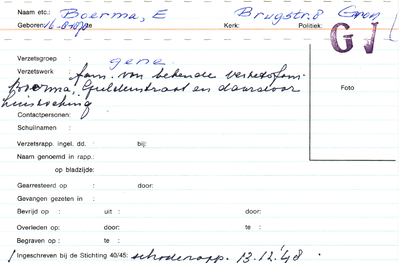 Naam etc.: Boerma, E Brugstr. 8 Gron
Geboren: 16-8-98 te Kerk: Politiek: GV
Verzetsgroep : gene.
Verzetswerk : fam. van bekende verzetsfam.
Boerma, Guldenstraat en daarvoor
huiszoeking
Contactpersonen:
Schuilnamen :
Foto
Verzetsrapp. ingel. dd. : bij:
Naam genoemd in rapp.:
op bladzijde:
Gearresteerd op : door:
Gevangen gezeten in :
Bevrijd op : uit : door:
Overleden op: door: te :
Begraven op : te :
Ingeschreven bij de Stichting 40/45: schaderapp. 13.12.'48.